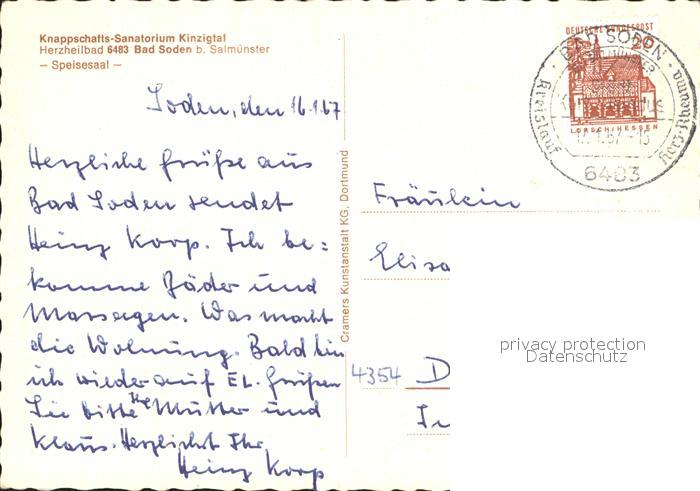 Knappschafts-Sanatorium Kinzigtal
Herzheilbad 6483 Bad Soden b. Salmünster
— Speisesaal —
Soden, den 16.1.67
Herzliche Grüße aus
Bad Soden sendet
Heinz Korp. Ich be=
komme Bäder und
Massagen. Was macht
die Wohnung. Bald bin
ich wieder auf EL. Grüßen
Sie bitte Ihre Mutter und
Klaus. Herzlichst Ihr
Heinz Korp
Cramers Kunstanstalt KG, Dortmund
DEUTSCHE BUNDESPOST
20
LORSCH/HESSEN
BAD SODEN
6483
Fräulein
Elisa
4354 D
privacy protection
Datenschutz